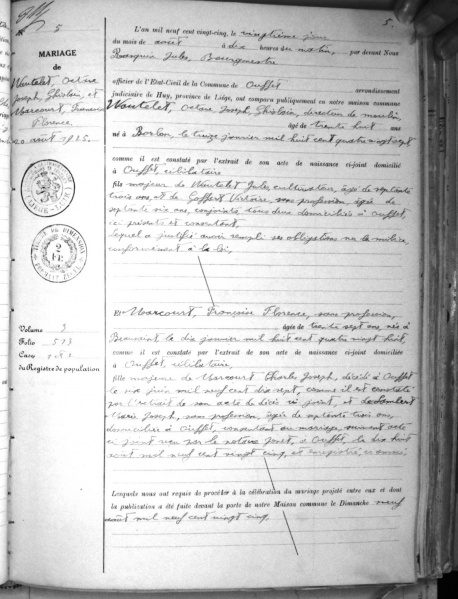 5.
N° 5
MARIAGE
de
Wautelet, Octave
Joseph, Ghislain, et
Marcourt, Francoise
Florence.
20 août 1925.
Volume 3
Folio 573
Case
du Registre de population
L'an mil neuf cent vingt-cinq, le vingtième jour
du mois de août à dix heures du matin, par devant Nous
Jules, Bourgmestre
officier de l'Etat-Civil de la Commune de Ouffet arrondissement
judiciaire de Huy, province de Liége, ont comparu publiquement en notre maison commune
Wautelet, Octave Joseph, Ghislain, directeur de moulin,
âgé de trente huit ans
né à Borlon, le treize janvier mil huit cent quatre vingt sept
comme il est constaté par l'extrait de son acte de naissance ci-joint domicilié
à Ouffet, célibataire
fils majeur de Wautelet Jules, cultivateur, âgé de septante
trois ans, et de Goffart Victoire, sans profession, âgée de
septante six ans, conjoints tous deux domiciliés à Ouffet,
ci présents et consentant.
lequel a justifié avoir rempli ses obligations sur la milice,
conformément à la loi.
Et Marcourt, Francoise Florence, sans profession,
âgée de trente sept ans, née à
le dix janvier mil huit cent quatre vingt huit,
comme il est constaté par l'extrait de son acte de naissance ci-joint domiciliée
à Ouffet, célibataire,
fille majeure de Marcourt Charles Joseph, décédé à Ouffet
le six juin mil neuf cent dix sept, comme il est constaté
par l'extrait de son acte de décès ci joint, et de Lambert
Marie Joseph, sans profession, âgée de septante trois ans,
domiciliée à Ouffet, consentant au mariage, suivant acte
ci joint reçu par le notaire à Ouffet, le dix huit
août mil neuf cent vingt cinq, et enregistré, ci annexé.
Lesquels nous ont requis de procéder à la célébration du mariage projeté entre eux et dont
la publication a été faite devant la porte de notre Maison commune le Dimanche neuf
août mil neuf cent vingt cinq,